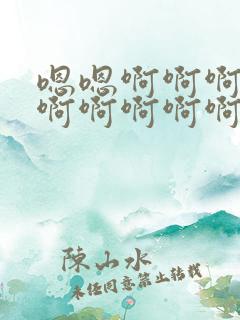 嗯嗯啊啊啊
啊啊啊啊啊
陈山水
未经同意禁止转载